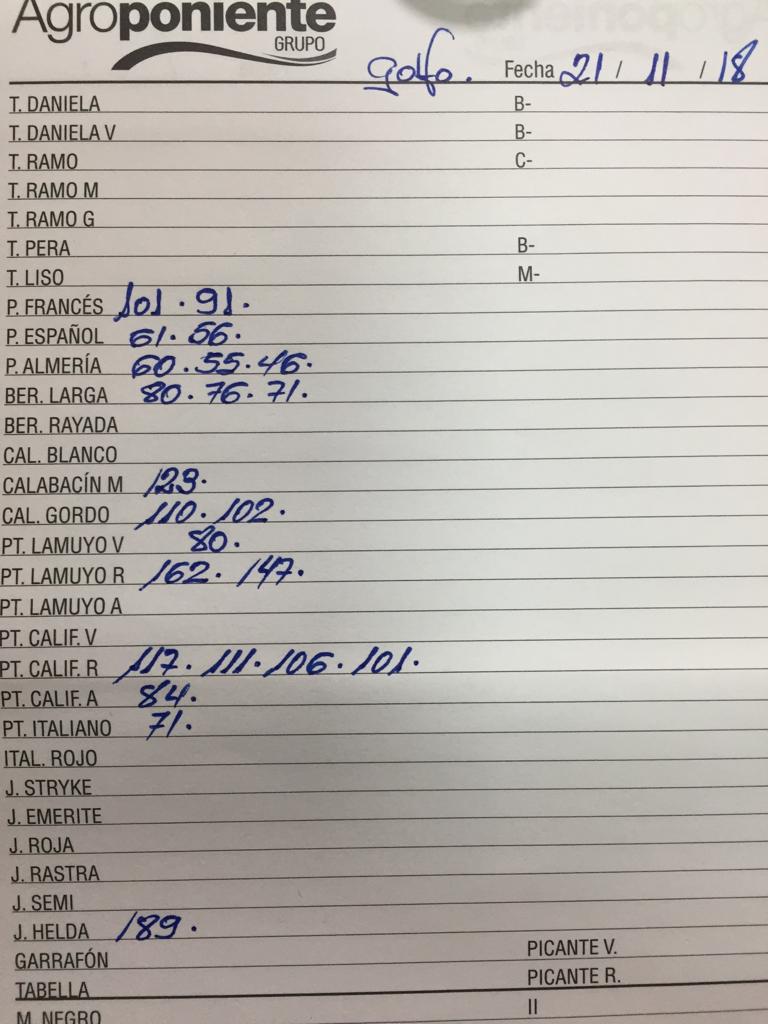 Agroponiente
GRUPO
golfo. Fecha 21 / 11 / 18
T. DANIELA B-
T. DANIELA V B-
T. RAMO C-
T. RAMO M
T. RAMO G
T. PERA B-
T. LISO M-
P. FRANCÉS 101 . 91.
P. ESPAÑOL 61. 56.
P. ALMERÍA 60.55.46.
BER. LARGA 80.76.71.
BER. RAYADA
CAL. BLANCO
CALABACÍN M 123.
CAL. GORDO 110. 102.
PT. LAMUYO V 80.
PT. LAMUYO R 162. 147.
PT. LAMUYO A
PT. CALIF. V
PT. CALIF. R 117. 111. 106. 101.
PT. CALIF. A 84.
PT. ITALIANO 71.
ITAL. ROJO
J. STRYKE
J. EMERITE
J. ROJA
J. RASTRA
J. SEMI
J. HELDA 189.
GARRAFÓN PICANTE V.
TABELLA PICANTE R.
M. NEGRO II